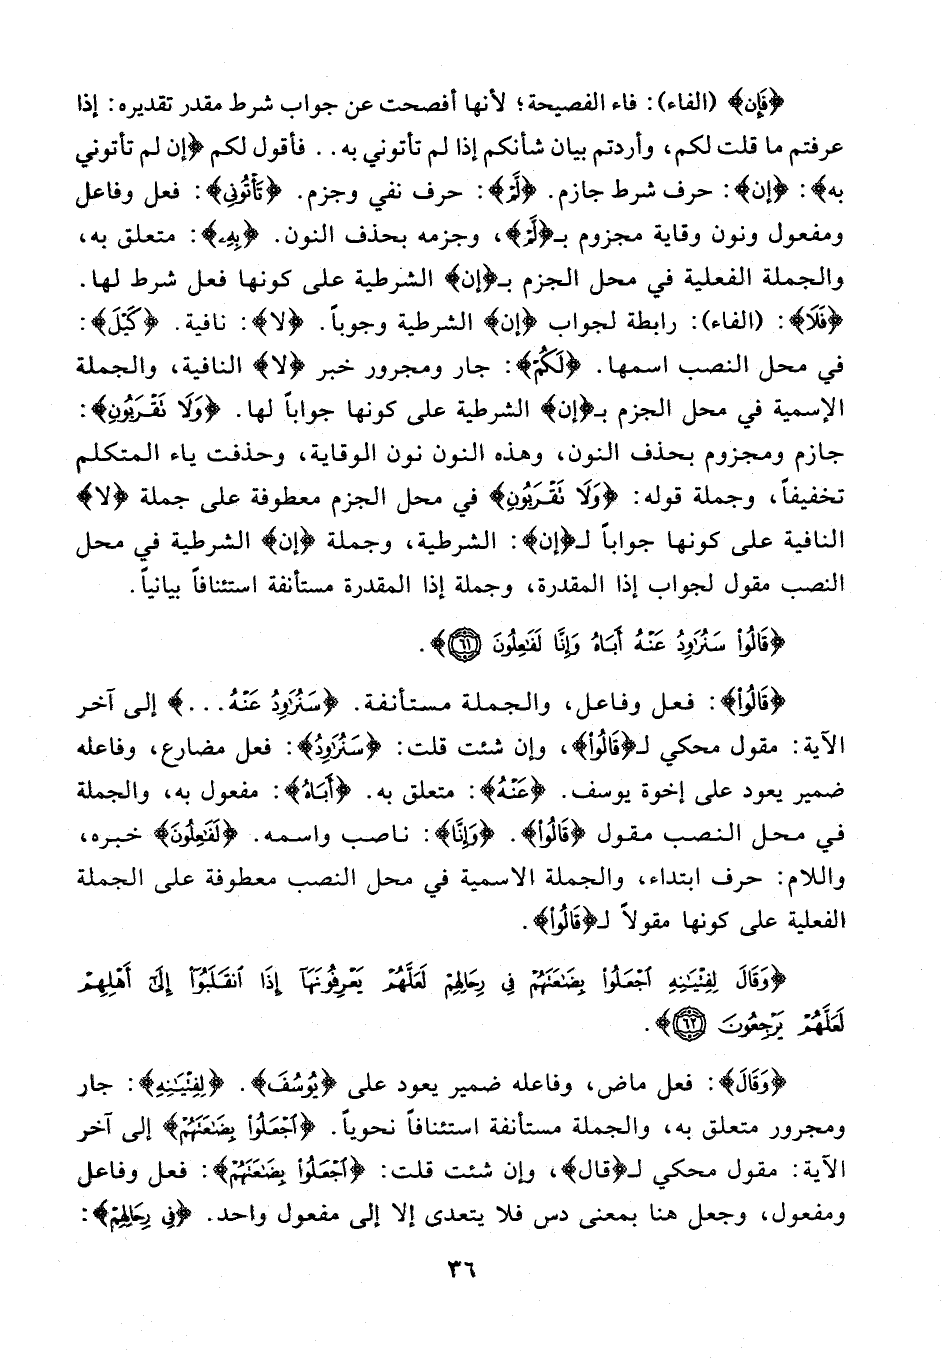 ﴿فَإِن﴾ (الفاء): فاء الفصيحة؛ لأنها أفصحت عن جواب شرط مقدر تقديره: إذا
عرفتم ما قلت لكم، وأردتم بيان شأنكم إذا لم تأتوني به.. فأقول لكم ﴿إن لم تأتوني
به﴾: ﴿إن﴾: حرف شرط جازم. ﴿لَّمْ﴾: حرف نفي وجزم. ﴿تَأْتُونِي﴾: فعل وفاعل
ومفعول ونون وقاية مجزوم بـ﴿لَّمْ﴾، وجزمه بحذف النون. ﴿بِهِۦ﴾: متعلق به،
والجملة الفعلية في محل الجزم بـ﴿إن﴾ الشرطية على كونها فعل شرط لها.
﴿فَلَا﴾: (الفاء): رابطة لجواب ﴿إن﴾ الشرطية وجوباً. ﴿لا﴾: نافية. ﴿كَيْلَ﴾:
في محل النصب اسمها. ﴿لَكُمْ﴾: جار ومجرور خبر ﴿لا﴾ النافية، والجملة
الإسمية في محل الجزم بـ﴿إن﴾ الشرطية على كونها جواباً لها. ﴿وَلَا نَقْرَبُونِ﴾:
جازم ومجزوم بحذف النون، وهذه النون نون الوقاية، وحذفت ياء المتكلم
تخفيفاً، وجملة قوله: ﴿وَلَا نَقْرَبُونِ﴾ في محل الجزم معطوفة على جملة ﴿لا﴾
النافية على كونها جواباً لـ﴿إن﴾: الشرطية، وجملة ﴿إن﴾ الشرطية في محل
النصب مقول لجواب إذا المقدرة، وجملة إذا المقدرة مستأنفة استئنافاً بيانياً.
﴿قَالُواْ سَنُرَٰوِدُ عَنْهُ أَبَاهُ وَإِنَّا لَفَٰعِلُونَ ٦١﴾.
﴿قَالُواْ﴾: فعل وفاعل، والجملة مستأنفة. ﴿سَنُرَٰوِدُ عَنْهُ...﴾ إلى آخر
الآية: مقول محكي لـ﴿قَالُواْ﴾، وإن شئت قلت: ﴿سَنُرَٰوِدُ﴾: فعل مضارع، وفاعله
ضمير يعود على إخوة يوسف. ﴿عَنْهُ﴾: متعلق به. ﴿أَبَاهُ﴾: مفعول به، والجملة
في محل النصب مقول ﴿قَالُواْ﴾. ﴿وَإِنَّا﴾: ناصب واسمه. ﴿لَفَٰعِلُونَ﴾ خبره،
واللام: حرف ابتداء، والجملة الاسمية في محل النصب معطوفة على الجملة
الفعلية على كونها مقولاً لـ﴿قَالُواْ﴾.
﴿وَقَالَ لِفِتْيَٰنِهِ ٱجْعَلُواْ بِضَٰعَتَهُمْ فِي رِحَالِهِمْ لَعَلَّهُمْ يَعْرِفُونَهَآ إِذَا ٱنقَلَبُوٓاْ إِلَىٰٓ أَهْلِهِمْ
لَعَلَّهُمْ يَرْجِعُونَ ٦٢﴾.
﴿وَقَالَ﴾: فعل ماض، وفاعله ضمير يعود على ﴿يُوسُفَ﴾. ﴿لِفِتْيَٰنِهِ﴾: جار
ومجرور متعلق به، والجملة مستأنفة استئنافاً نحوياً. ﴿ٱجْعَلُواْ بِضَٰعَتَهُمْ﴾ إلى آخر
الآية: مقول محكي لـ﴿قال﴾، وإن شئت قلت: ﴿ٱجْعَلُواْ بِضَٰعَتَهُمْ﴾: فعل وفاعل
ومفعول، وجعل هنا بمعنى دس فلا يتعدى إلا إلى مفعول واحد. ﴿فِي رِحَالِهِمْ﴾:
٣٦